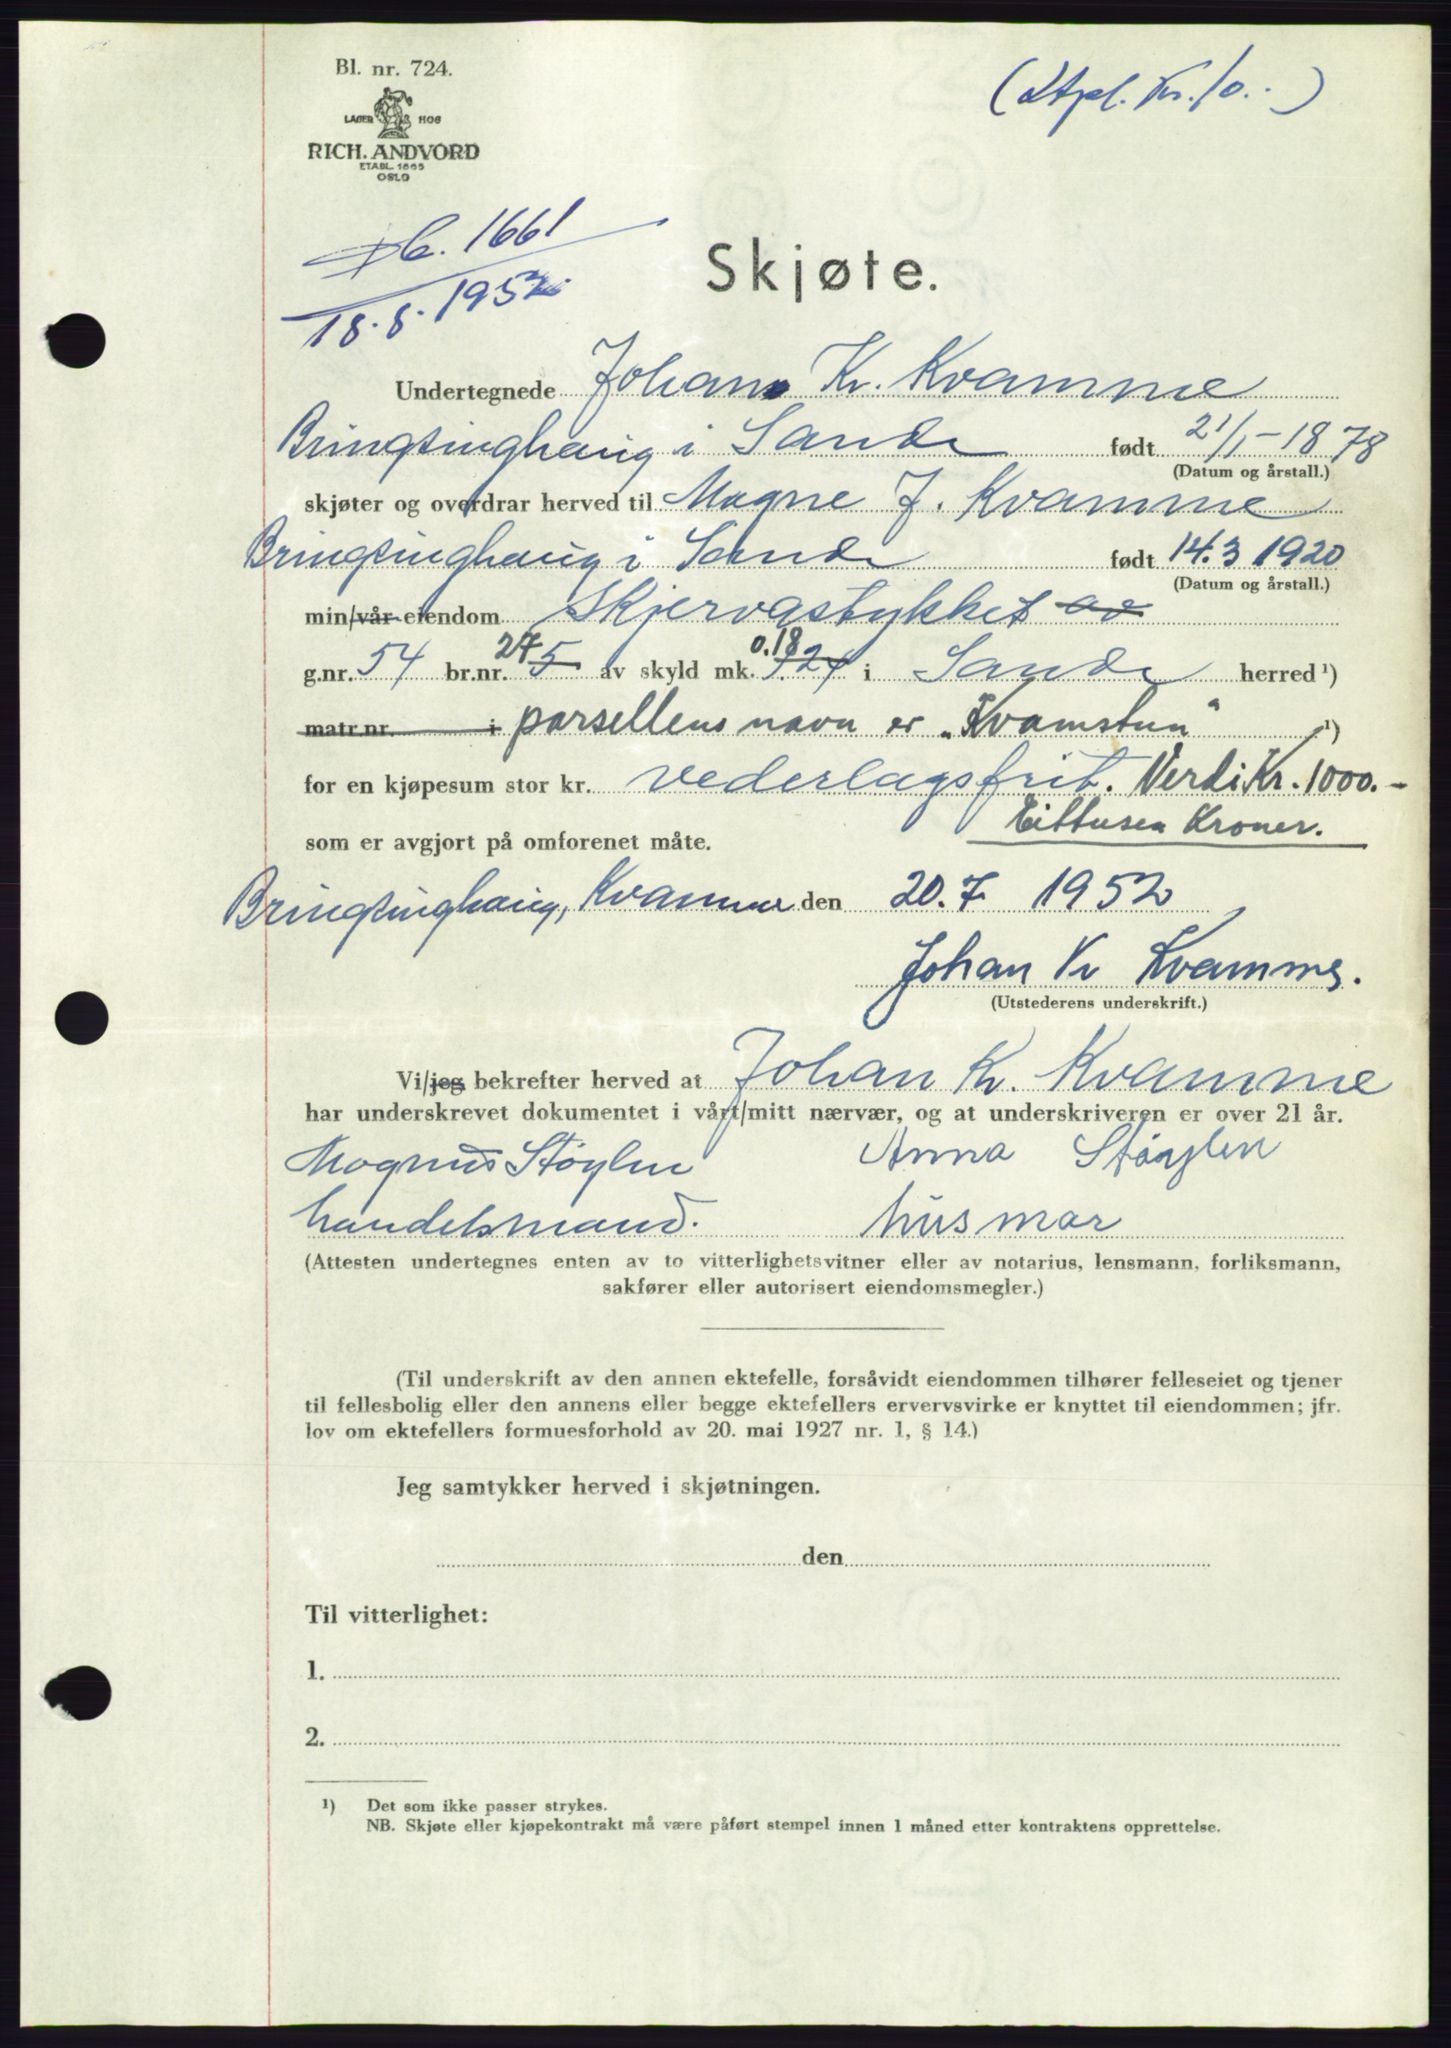 Bl. nr. 724.
(Stpl. Kr. 10.-)
LAGER HOS
RICH. ANDVORD
ETABL. 1865
OSLO
Db. 1661
18.8. 1952.
Skjøte.
Undertegnede Johan Kr. Kvamme
Bringsinghaug i Sande født 21/1-1878
(Datum og årstall.)
skjøter og overdrar herved til Magne J. Kvamme
Bringsinghaug i Sande født 14.3 1920
(Datum og årstall.)
min/vår eiendom Skjervastykket av
g.nr. 54 br.nr. 27 5 av skyld mk. 0.18 i Sande herred ¹)
matr.nr. i parsellens navn er „Kvamstun" ¹)
for en kjøpesum stor kr. vederlagsfrit. Verdi Kr. 1000.-
Eittusen Kroner.
som er avgjort på omforenet måte.
Bringsinghaug, Kvamme den 20.7 1952
Johan Kr Kvamme.
(Utstederens underskrift.)
Vi/jeg bekrefter herved at Johan Kr. Kvamme
har underskrevet dokumentet i vårt/mitt nærvær, og at underskriveren er over 21 år.
Magnus Støylen Anna Støylen
handelsmand. husmor
(Attesten undertegnes enten av to vitterlighetsvitner eller av notarius, lensmann, forliksmann,
sakfører eller autorisert eiendomsmegler.)
(Til underskrift av den annen ektefelle, forsåvidt eiendommen tilhører felleseiet og tjener
til fellesbolig eller den annens eller begge ektefellers ervervsvirke er knyttet til eiendommen; jfr.
lov om ektefellers formuesforhold av 20. mai 1927 nr. 1, § 14.)
Jeg samtykker herved i skjøtningen.
den
Til vitterlighet:
1.
2.
¹) Det som ikke passer strykes.
NB. Skjøte eller kjøpekontrakt må være påført stempel innen 1 måned etter kontraktens opprettelse.